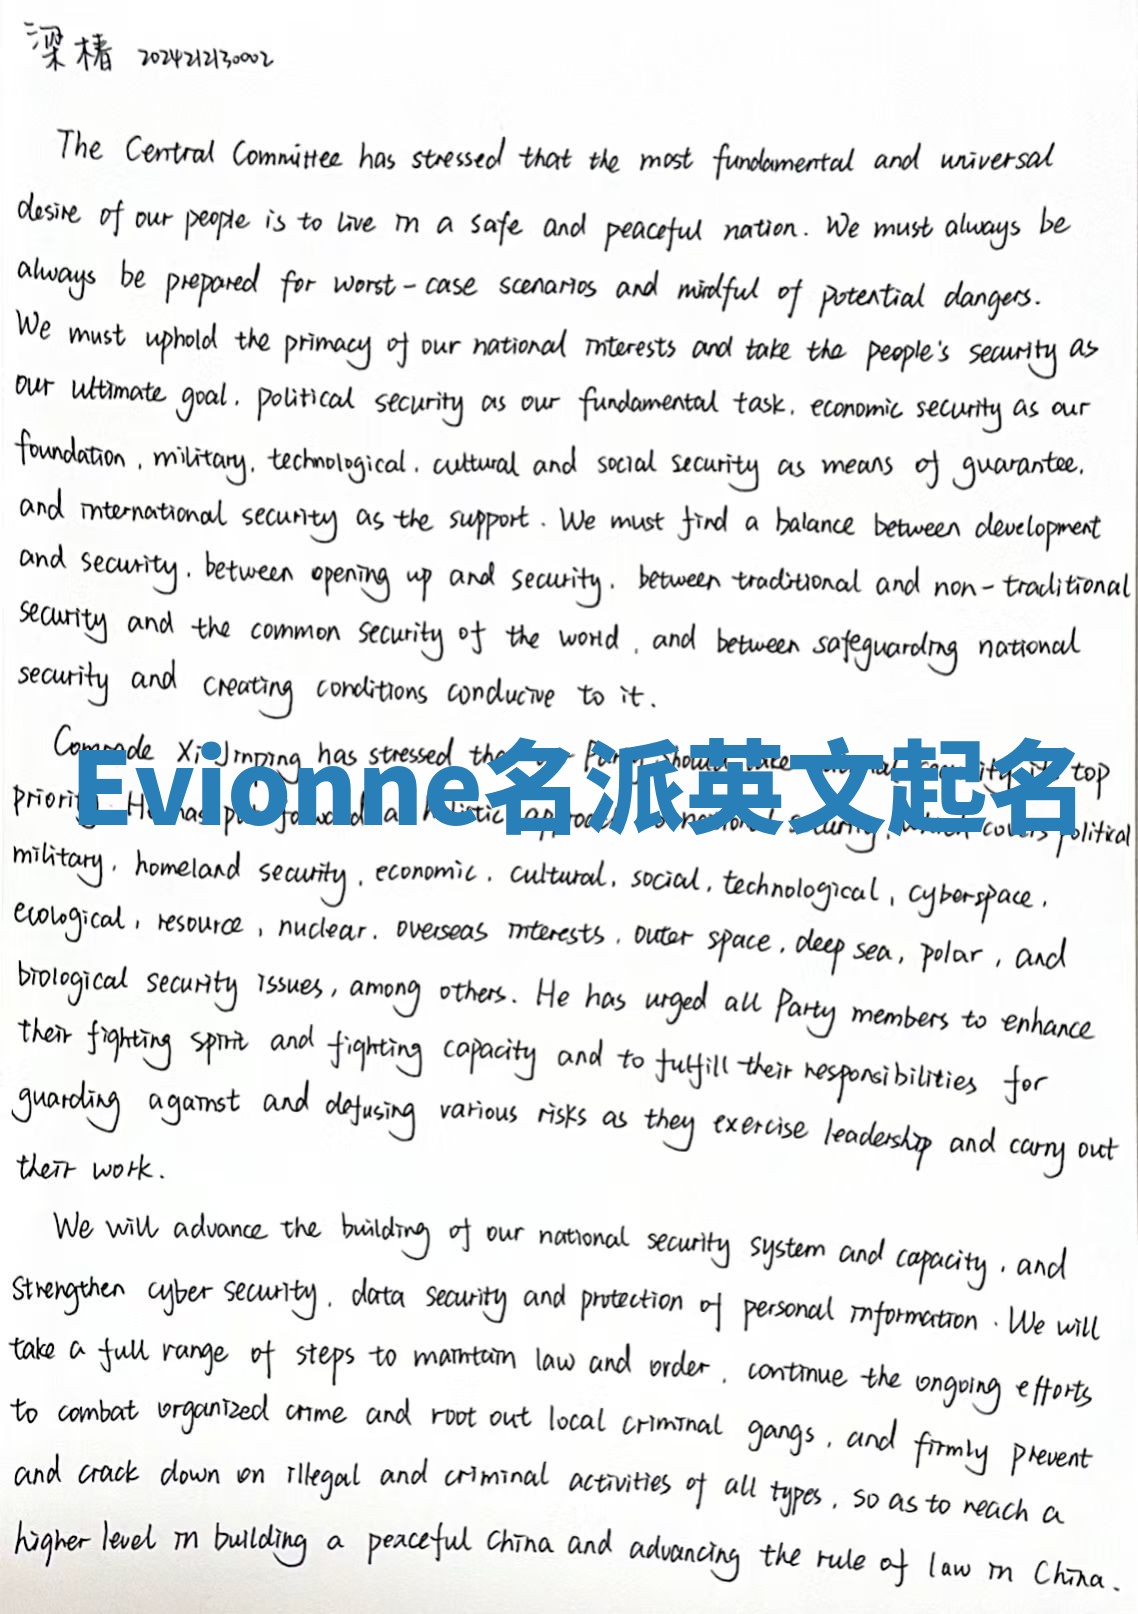 梁椿 2024212130002
The Central Committee has stressed that the most fundamental and universal
desire of our people is to live in a safe and peaceful nation. We must always be
always be prepared for worst-case scenarios and mindful of potential dangers.
We must uphold the primacy of our national interests and take the people's security as
our ultimate goal, political security as our fundamental task, economic security as our
foundation, military, technological, cultural and social security as means of guarantee,
and international security as the support. We must find a balance between development
and security, between opening up and security, between traditional and non-traditional
security and the common security of the world, and between safeguarding national
security and creating conditions conducive to it.
Comrade Xi Jinping has stressed Party should top
Evionne名派英文起名
priority. He has put forward a holistic approach national security, which covers political
military, homeland security, economic, cultural, social, technological, cyberspace,
ecological, resource, nuclear, overseas interests, outer space, deep sea, polar, and
biological security issues, among others. He has urged all Party members to enhance
their fighting spirit and fighting capacity and to fulfill their responsibilities for
guarding against and defusing various risks as they exercise leadership and carry out
their work.
We will advance the building of our national security system and capacity, and
strengthen cyber security, data security and protection of personal information. We will
take a full range of steps to maintain law and order, continue the ongoing efforts
to combat organized crime and root out local criminal gangs, and firmly prevent
and crack down on illegal and criminal activities of all types, so as to reach a
higher level in building a peaceful China and advancing the rule of law in China.